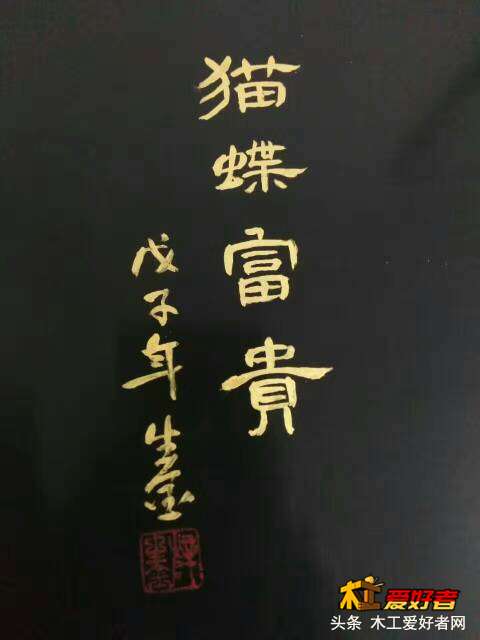 猫蝶富貴
戊子年 生金
木工爱好者
头条 木工爱好者网